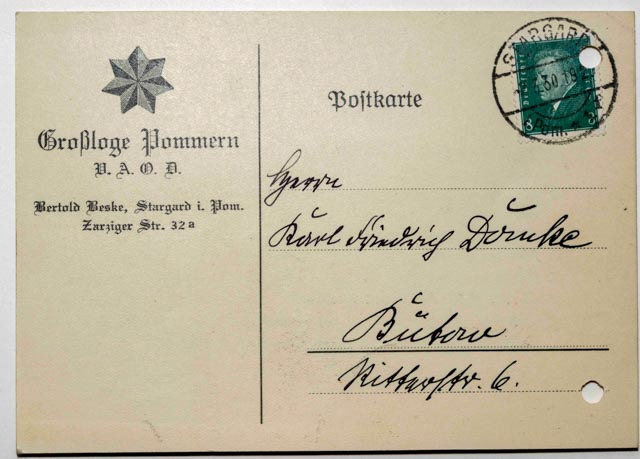 Großloge Pommern
V. A. O. D.
Bertold Beske, Stargard i. Pom.
Zarziger Str. 32a
Postkarte
STARGARD
30.
Pom.
8
Herrn
Karl Friedrich Domke
Bütow
Ritterstr. 6.